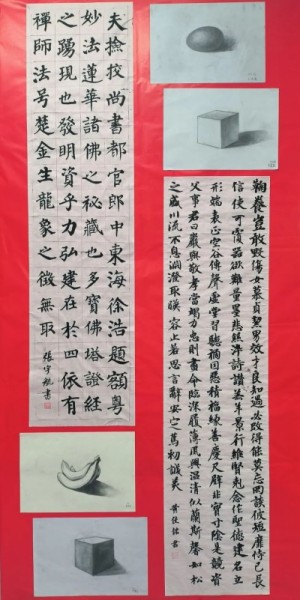 夫撿挍尚書都官郎中東海徐浩題額粵
妙法蓮華諸佛之秘藏也多寶佛塔證經
之踴現也發明資乎力弘建在於四依有
禪師法号楚金生龍象之徵無取
張宇書
鞠養豈敢毀傷女慕貞絜男效才良知過必改得能莫忘罔談彼短靡恃己長
信使可覆器欲難量墨悲絲淬詩讚羔羊景行維賢剋念作聖德建名立
形端表正空谷傳聲虛堂習聽禍因惡積福緣善慶尺璧非寶寸陰是競資
父事君曰嚴與敬孝當竭力忠則盡命臨深履薄夙興溫清似蘭斯馨如松
之盛川流不息淵澄取暎容止若思言辭安定篤初誠美
黄書